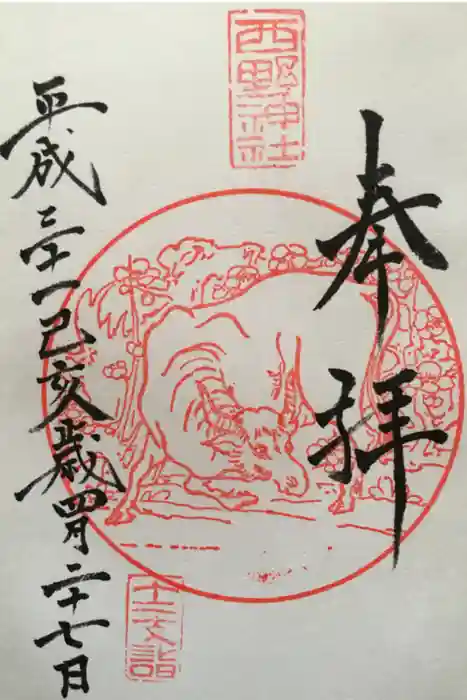 奉拝
西野神社
平成三十一己亥歳四月二十七日
十二支詣